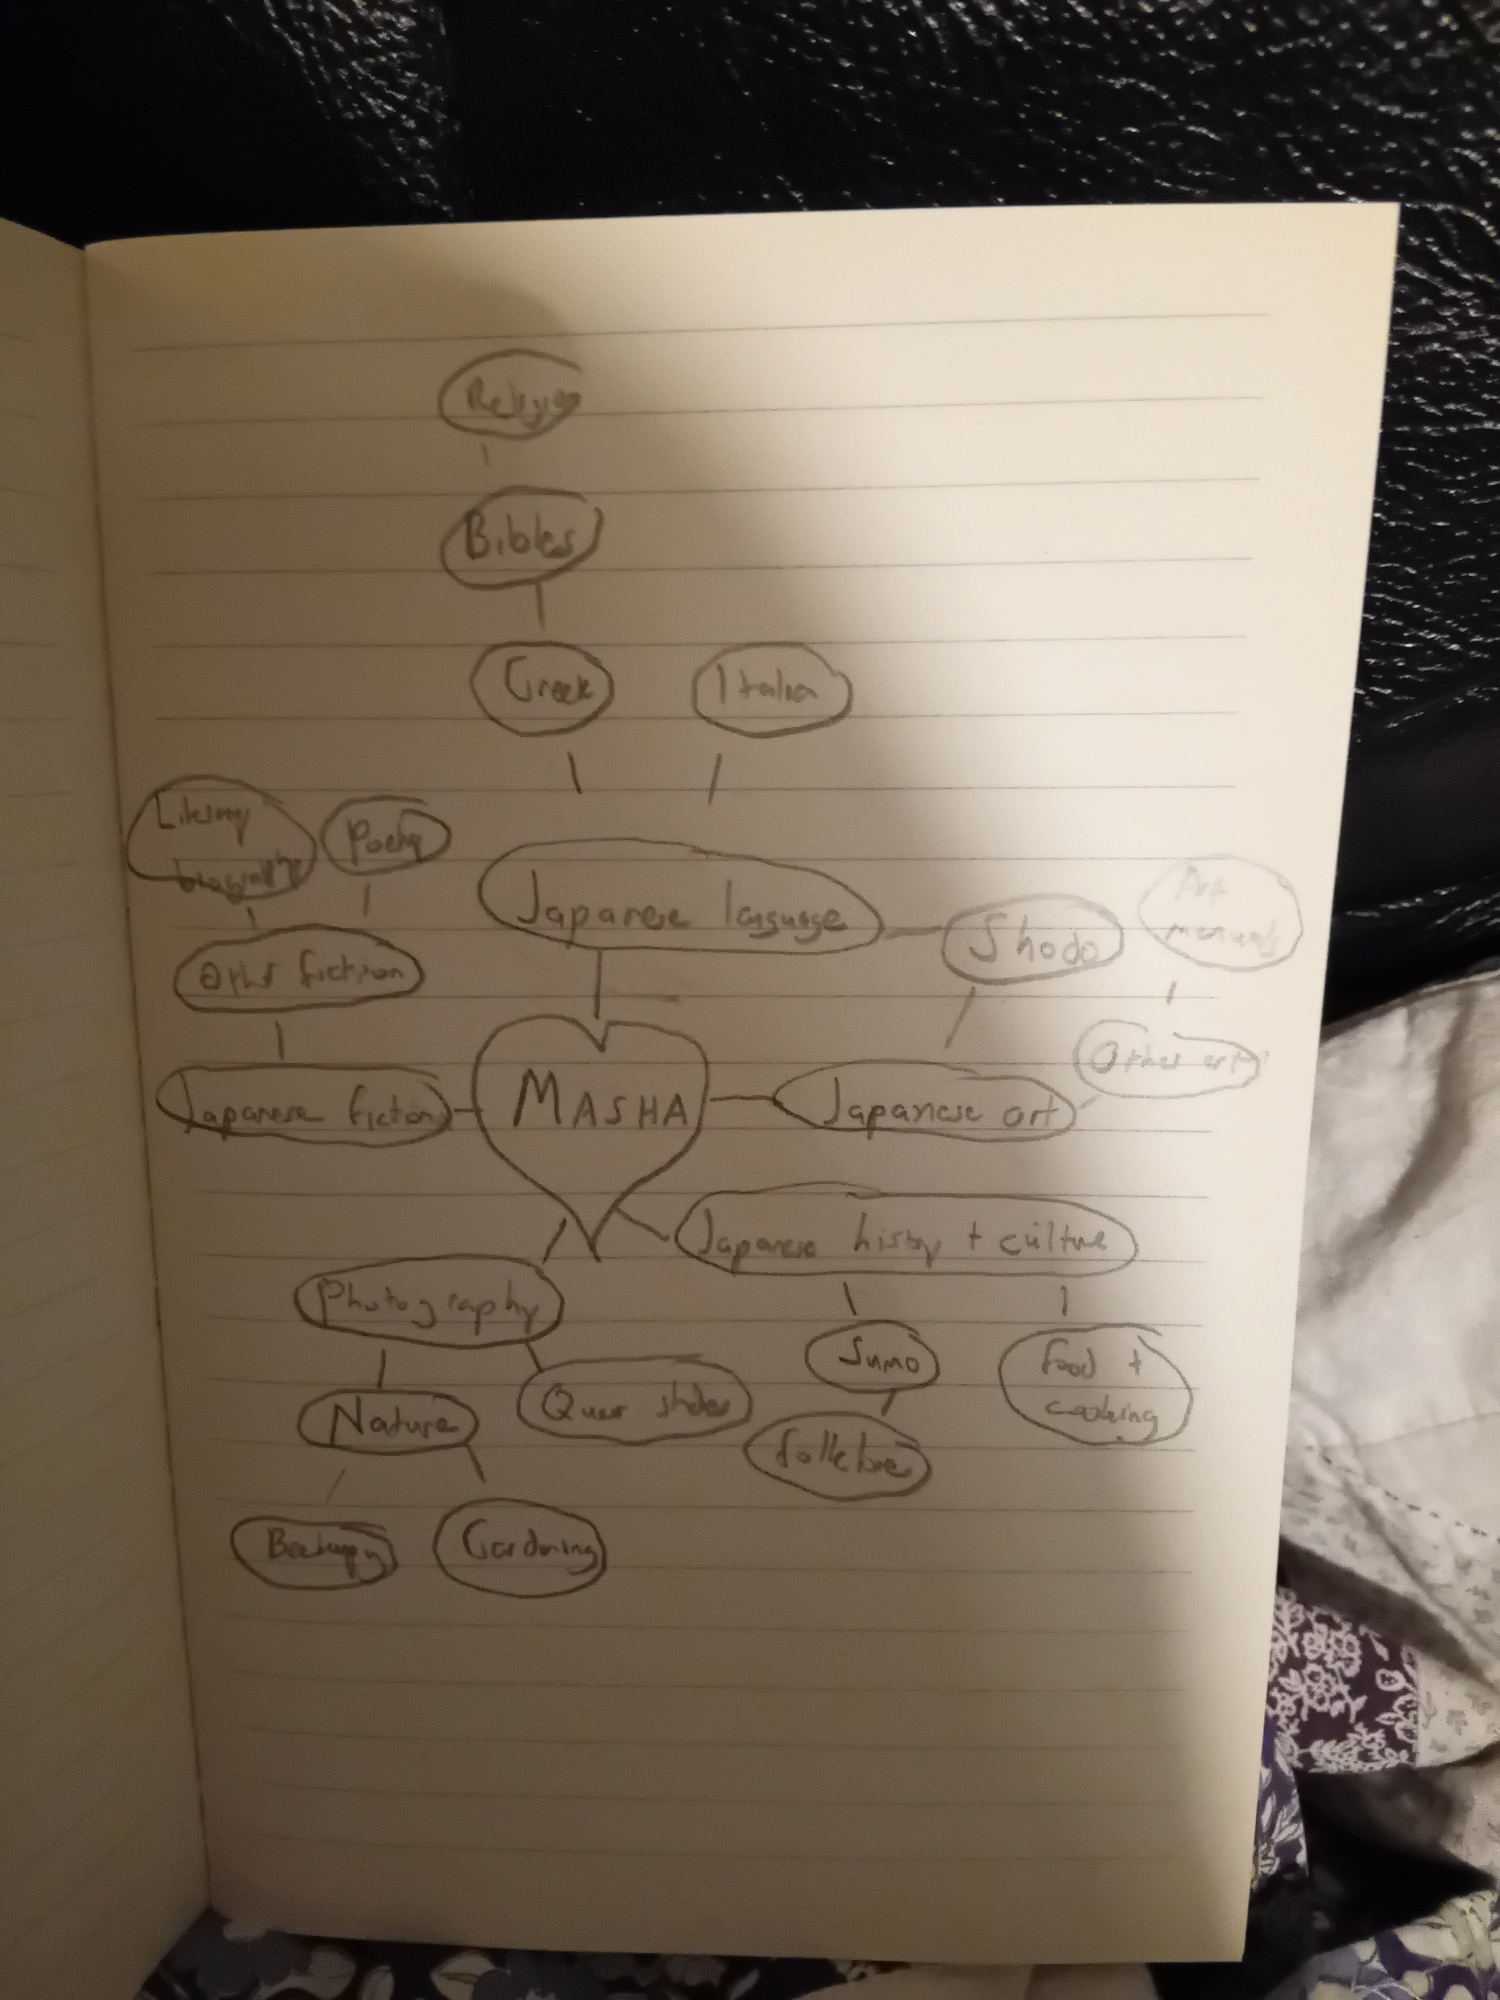 Religion
Bibles
Greek
Italian
Literary
biography
Poetry
Japanese language
Shodo
Art
manuals
Other fiction
Other art
Japanese fiction
MASHA
Japanese art
Japanese history + culture
Photography
Sumo
Food +
cooking
Nature
Queer studies
folklore
Beekeeping
Gardening